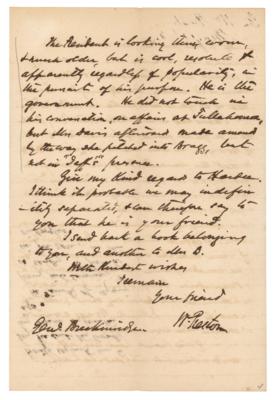 The President is looking thin, worn,
& much older, but is cool, resolute &
apparently regardless of popularity, in
the pursuit of his purpose. He is the
government. He did not touch in
his conversation, on affairs at Tullahoma,
but Mrs Davis afterward made amend
by the way she pitched into Bragg, but
not in "Jeff's" presence.
Give my kind regard to Hardee.
I think it probable we may indefin-
-itely separate, & can therefore say to
you that he is your friend.
I send back a book belonging
to you, and another to Mrs B.
With kindest wishes
I remain
Your friend
Genl Breckinridge. W. Preston